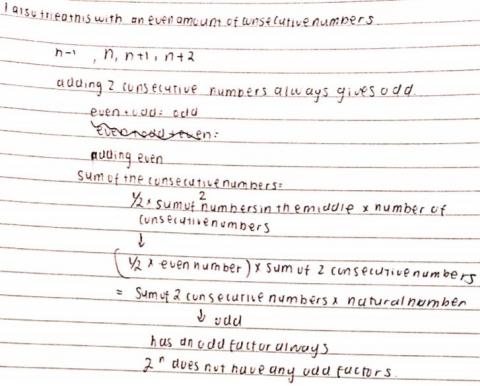 I also tried this with an even amount of consecutive numbers.
n-1 , n, n+1, n+2
adding 2 consecutive numbers always gives odd
even + odd = odd
even + odd + even =
adding even
sum of the consecutive numbers =
1/2 × sum of 2 numbers in the middle × number of
consecutive numbers
↓
(1/2 × even number) × sum of 2 consecutive numbers
= sum of 2 consecutive numbers × natural number
↓ odd
has an odd factor always
2ⁿ does not have any odd factors.